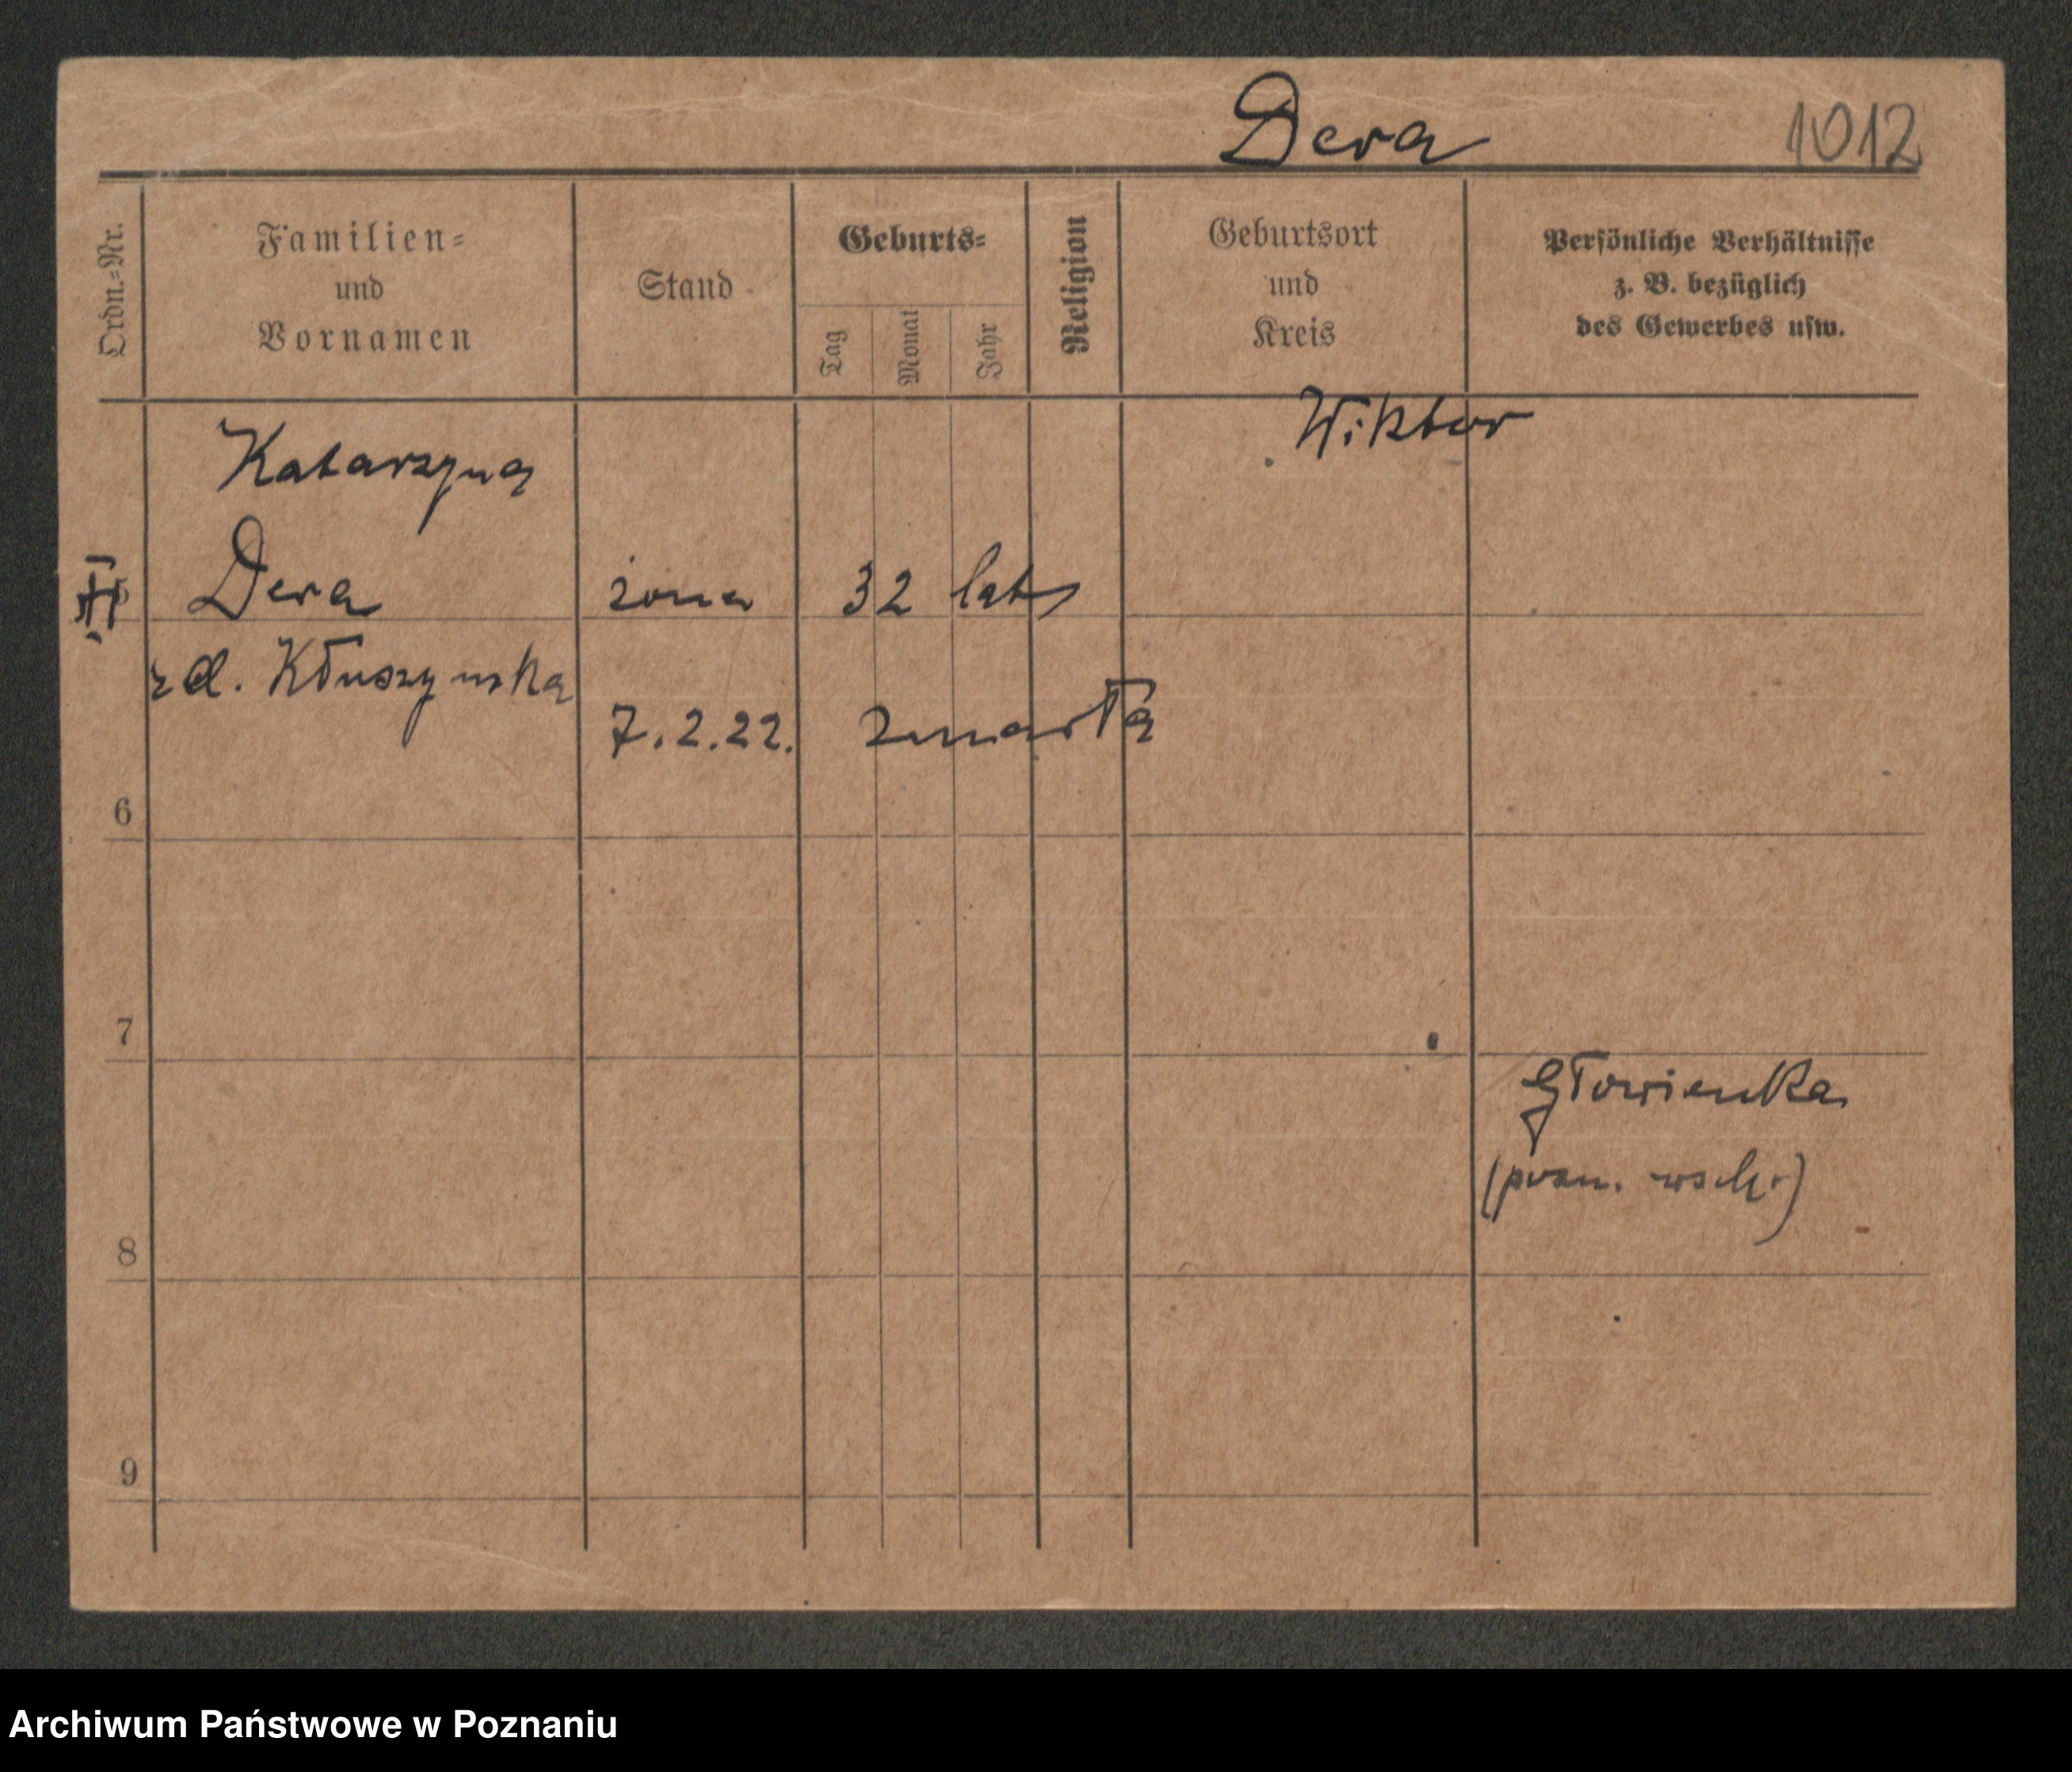 Dera 1012
Ordn.=Nr.
Familien=
und
Vornamen
Stand
Geburts=
Tag
Monat
Jahr
Religion
Geburtsort
und
Kreis
Persönliche Verhältnisse
z. B. bezüglich
des Gewerbes usw.
Wiktor
Katarzyna
Dera żona 32 lat
zd. Kłuszynska
7.2.22. zmarła
6
7
Głowienka
(pozn. wsch.)
8
9
Archiwum Państwowe w Poznaniu